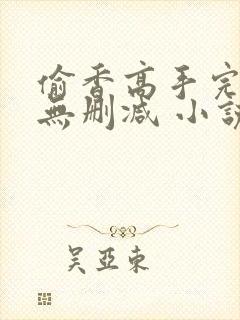 偷香高手完
無刪減 小説
吴亞東